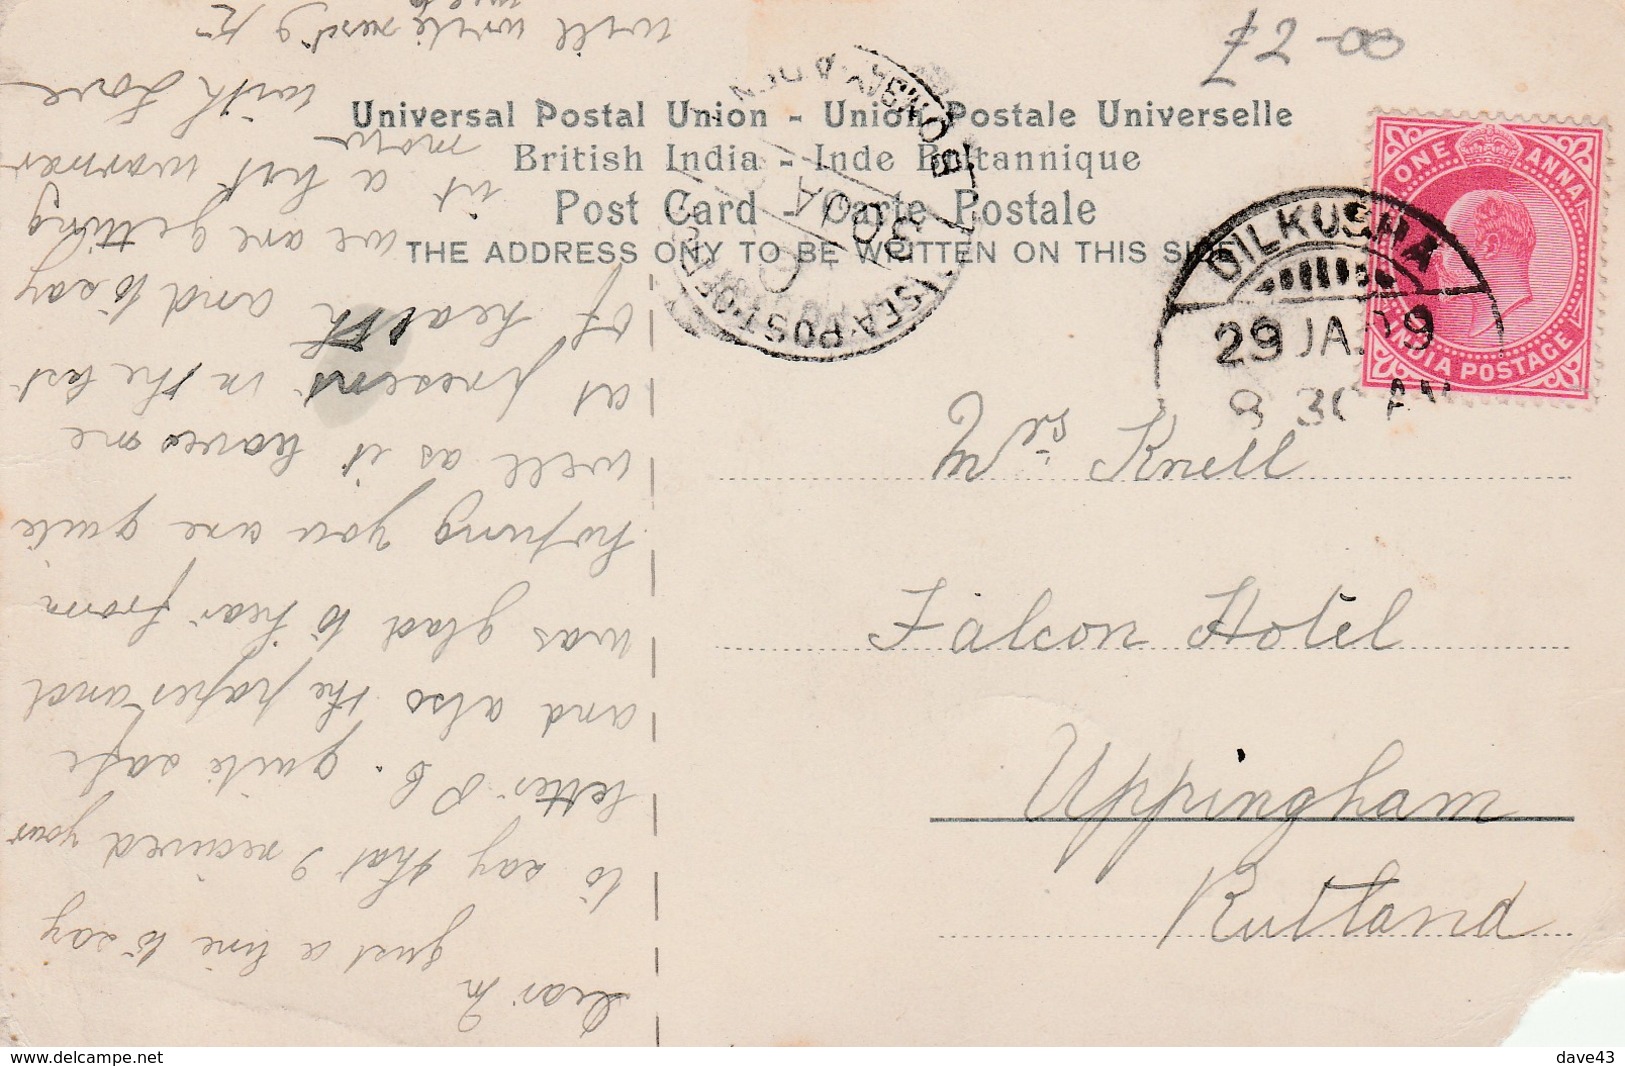 £2-00
Universal Postal Union - Union Postale Universelle
British India - Inde Britannique
Post Card - Carte Postale
THE ADDRESS ONY TO BE WRITTEN ON THIS SIDE
ONE ANNA
INDIA POSTAGE
DILKUSHA
29 JA.09
8 30 AM
BOMBAY
SEA POST OFFICE
30 JA
Mrs Knell
Falcon Hotel
Uppingham
Rutland
Dear M
Just a line to say
to say that I received your
letter P C. quite safe
and also the paper and
was glad to hear from
hoping you are quite
well as it leaves me
at present in the best
of health and to say
we are getting
it a bit warmer
now
with Love
will write next
week
www.delcampe.net
dave43